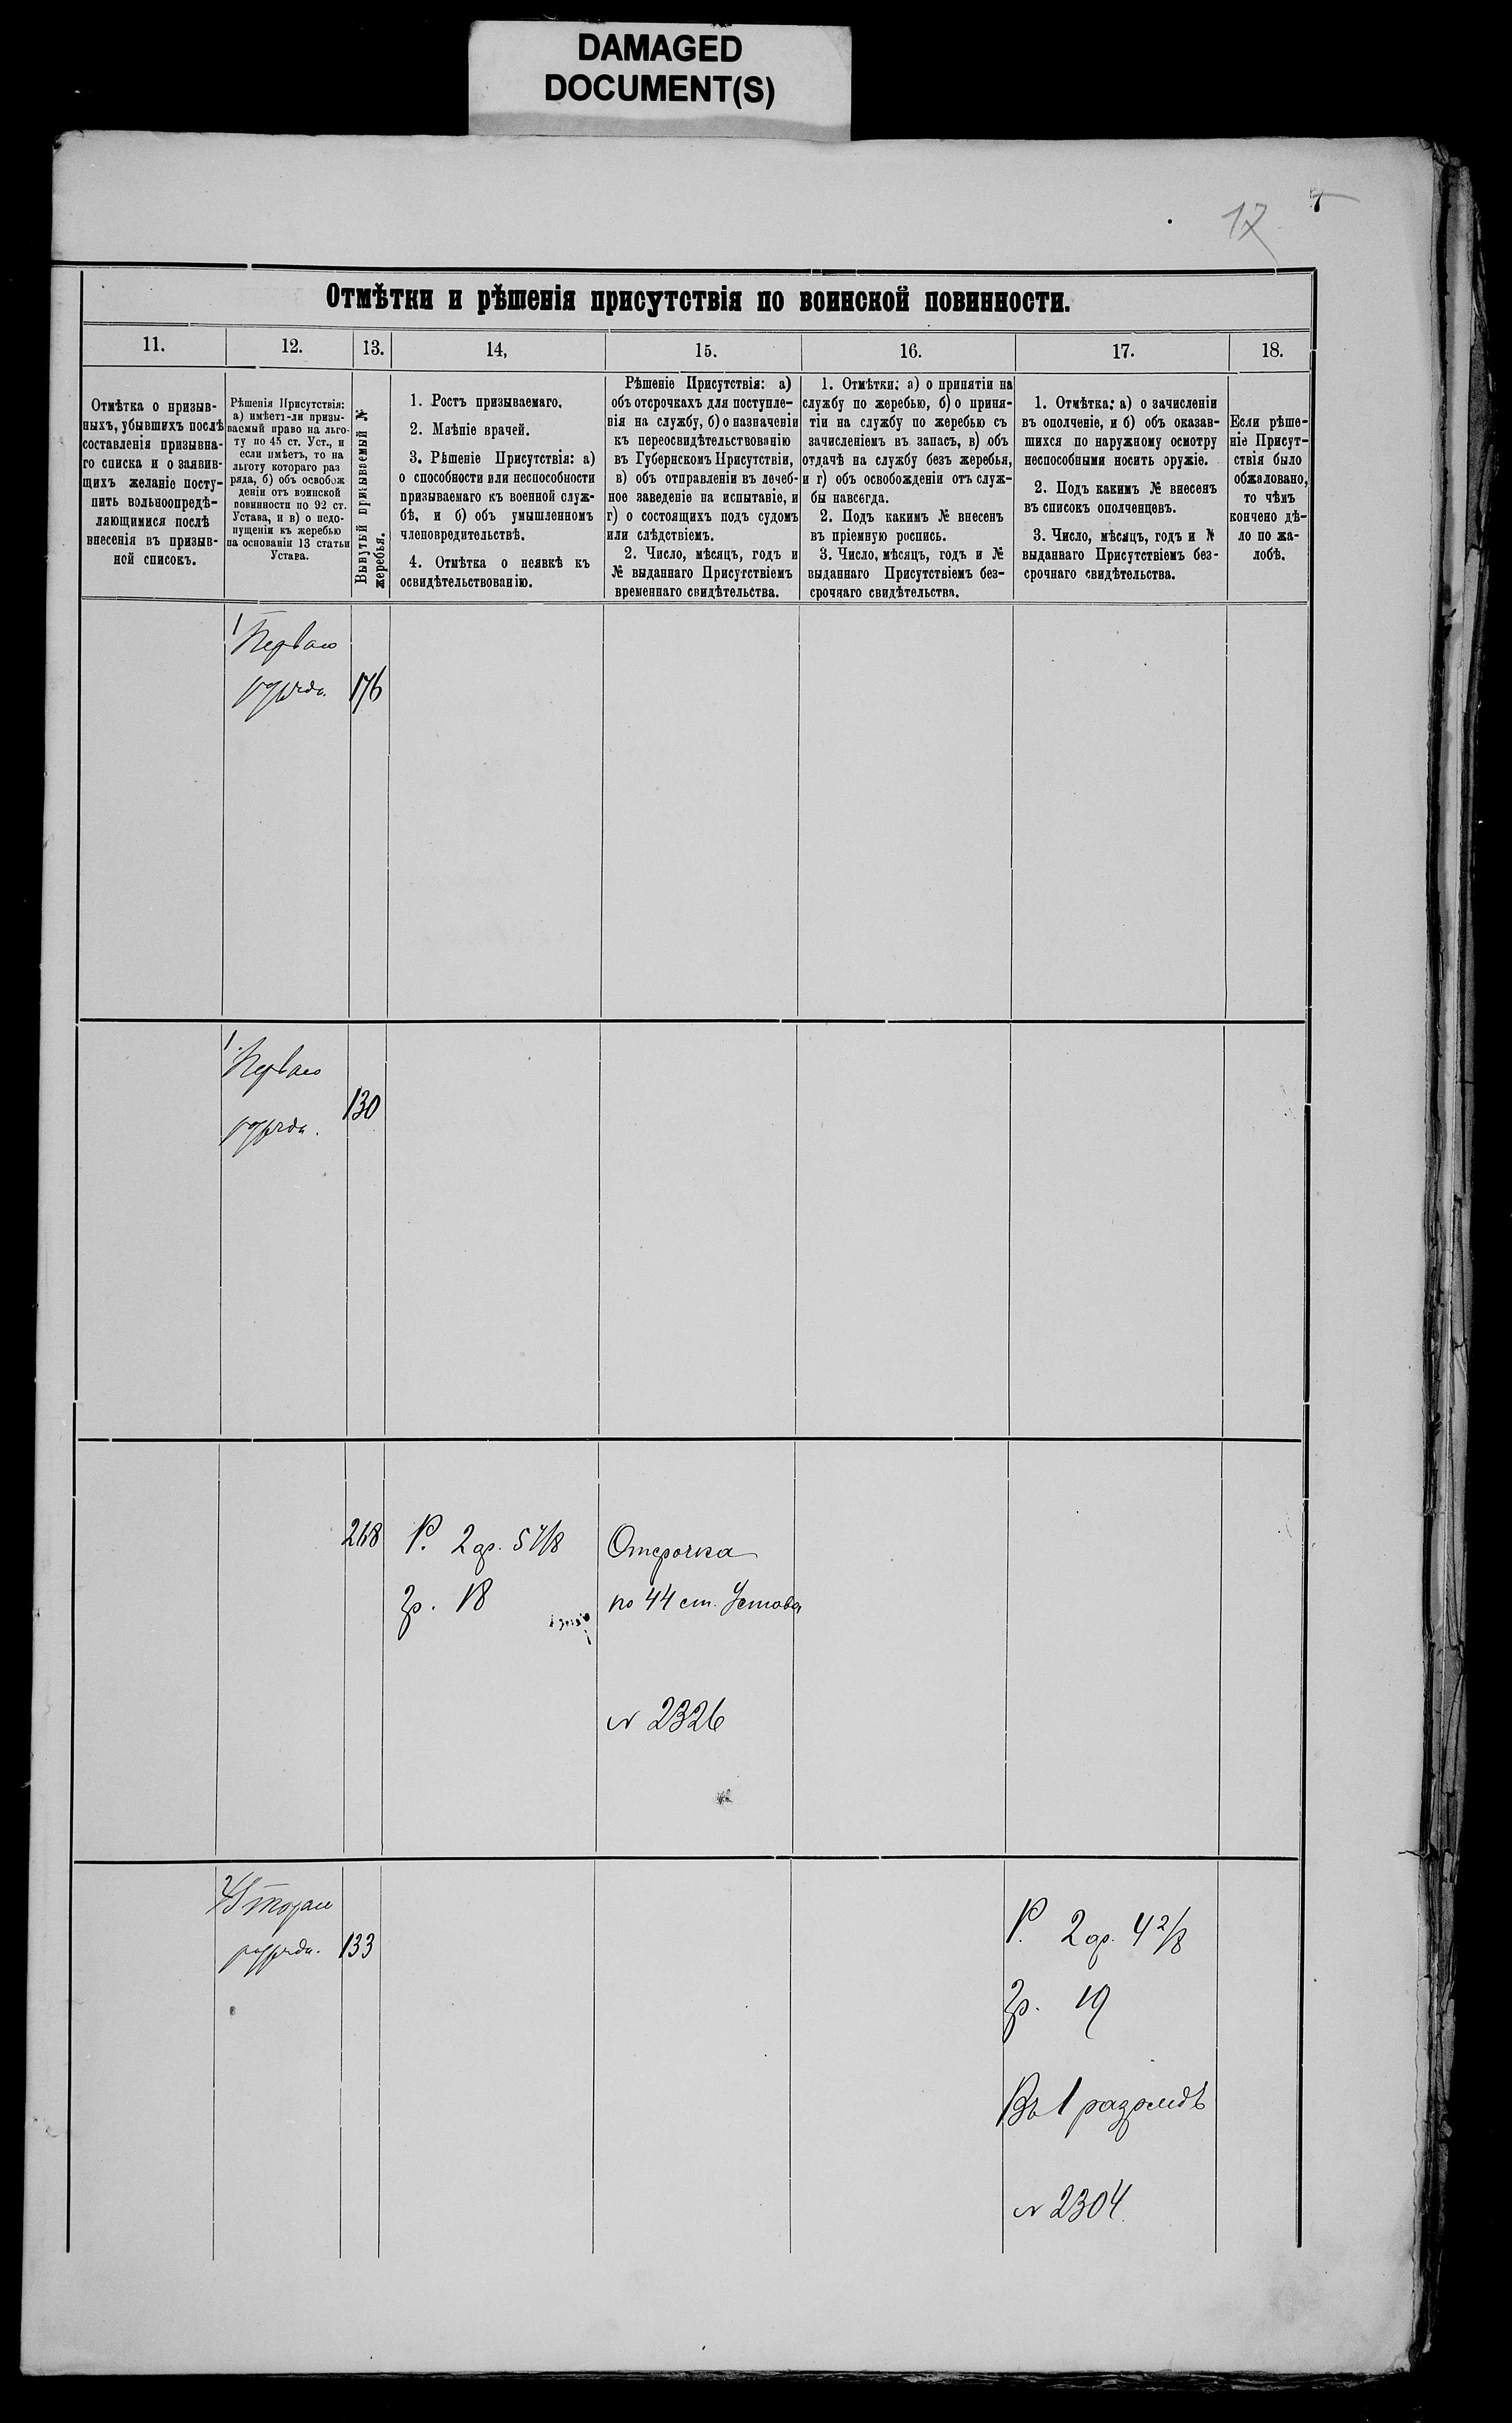 DAMAGED
DOCUMENT(S)
17
Отмѣтки и рѣшенія присутствія по воинской повинности.
11.
12.
13.
14,
15.
16.
17.
18.
Отмѣтка о призыв-
ныхъ, убывшихъ послѣ
составленія призывна-
го списка и о заявив-
щихъ желаніе посту-
пить вольноопредѣ-
ляющимися послѣ
внесенія въ призыв-
ной списокъ.
Рѣшенія Присутствія:
а) имѣетъ-ли призы-
ваемый право на льго-
ту по 45 ст. Уст., и
если имѣетъ, то на
льготу котораго раз
ряда, б) объ освобож
деніи отъ воинской
повинности по 92 ст.
Устава, и в) о недо-
пущеніи къ жеребью
на основаніи 13 статьи
Устава.
Вынутый призываемый №
жеребья.
1. Ростъ призываемаго.
2. Мнѣніе врачей.
3. Рѣшеніе Присутствія: а)
о способности или неспособности
призываемаго къ военной служ-
бѣ, и б) объ умышленномъ
членовредительствѣ.
4. Отмѣтка о неявкѣ къ
освидѣтельствованію.
Рѣшеніе Присутствія: а)
объ отсрочкахъ для поступле-
нія на службу, б) о назначеніи
къ переосвидѣтельствованію
въ Губернскомъ Присутствіи,
в) объ отправленіи въ лечеб-
ное заведеніе на испытаніе, и
г) о состоящихъ подъ судомъ
или слѣдствіемъ.
2. Число, мѣсяцъ, годъ и
№ выданнаго Присутствіемъ
временнаго свидѣтельства.
1. Отмѣтки: а) о принятіи на
службу по жеребью, б) о приня-
тіи на службу по жеребью съ
зачисленіемъ въ запасъ, в) объ
отдачѣ на службу безъ жеребья,
и г) объ освобожденіи отъ служ-
бы навсегда.
2. Подъ какимъ № внесенъ
въ пріемную роспись.
3. Число, мѣсяцъ, годъ и №
выданнаго Присутствіемъ без-
срочнаго свидѣтельства.
1. Отмѣтка: а) о зачисленіи
въ ополченіе, и б) объ оказав-
шихся по наружному осмотру
неспособными носить оружіе.
2. Подъ какимъ № внесенъ
въ списокъ ополченцевъ.
3. Число, мѣсяцъ, годъ и №
выданнаго Присутствіемъ без-
срочнаго свидѣтельства.
Если рѣше-
ніе Присут-
ствія было
обжаловано,
то чѣмъ
кончено дѣ-
ло по жа-
лобѣ.
1
Перваго
разряда.
176
1.
Перваго
разряда.
130
268
Р. 2 ар. 5 7/8
гр. 18
Отсрочка
по 44 ст. Устава
№ 2326
2
Втораго
разряда.
133
Р. 2 ар. 4 2/8
гр. 19
Въ 1 разрядъ
№ 2304.